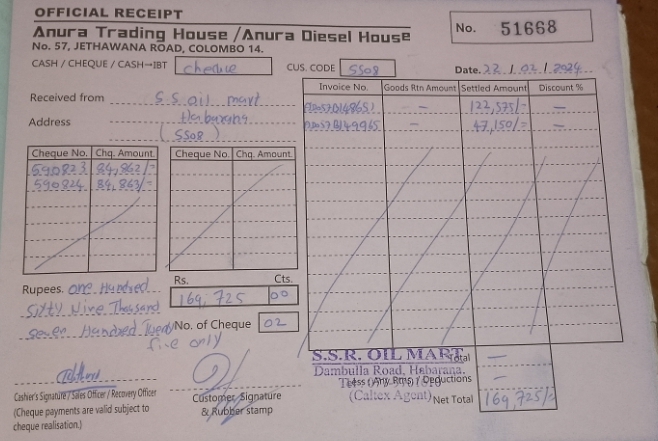 OFFICIAL RECEIPT
Anura Trading House /Anura Diesel House
No. 57, JETHAWANA ROAD, COLOMBO 14.
No. 51668
CASH / CHEQUE / CASH→IBT cheque
CUS. CODE SS08
Date. 22 / 02 / 2024
Received from S S oil mart
Address Habarana
(SS08)
Invoice No. Goods Rtn Amount Settled Amount Discount %
– 122,575/= –
– 47,150/= –
Cheque No. Chq. Amount Cheque No. Chq. Amount
590823 84,862/=
590824 84,863/=
Rupees. one Hundred
sixty Nine Thousand
seven Hundred Twenty
five only
Rs. Cts.
169,725 00
No. of Cheque 02
Cashier's Signature / Sales Officer / Recovery Officer
(Cheque payments are valid subject to
cheque realisation.)
Customer Signature
& Rubber stamp
S.S.R. OIL MART
Dambulla Road, Habarana.
(Caltex Agent)
Total –
Less (Any Rtns) / Deductions –
Net Total 169,725/=